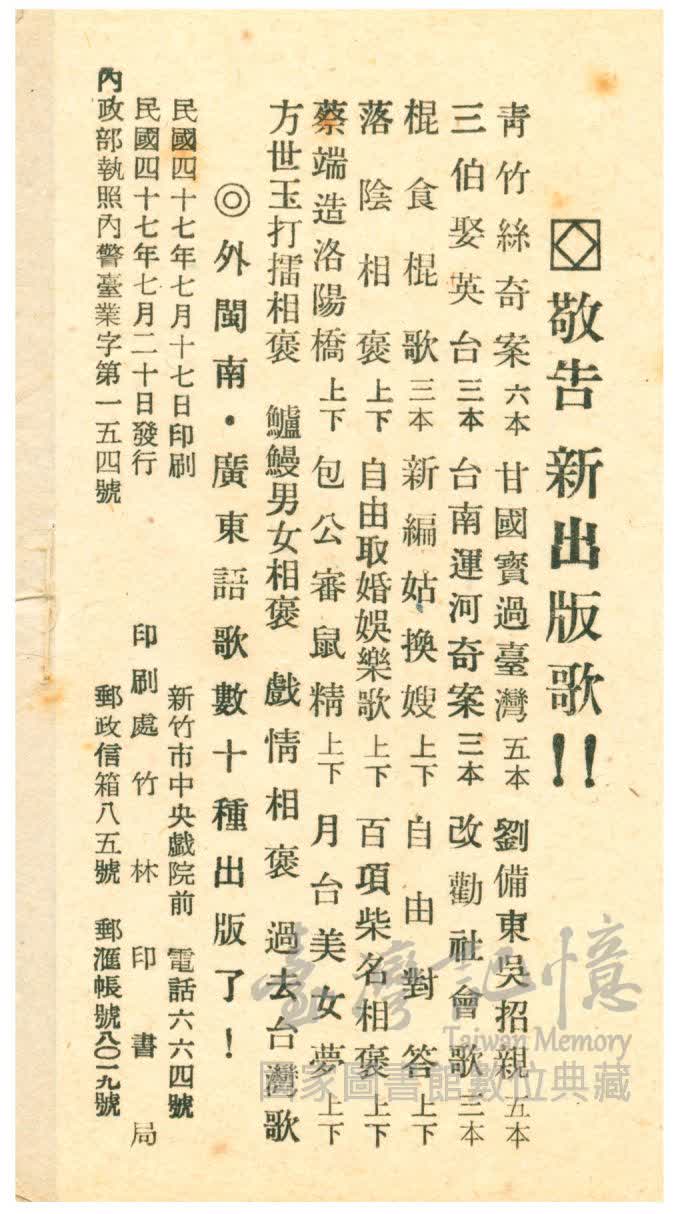 敬告 新出版歌!!
青竹絲奇案六本 甘國寶過臺灣五本 劉備東吳招親五本
三伯娶英台三本 台南運河奇案三本 改勸社會歌三本
棍食棍歌三本 新編姑換嫂上下 自由對答上下
落陰相褒上下 自由取婚娛樂歌上下 百項柴名相褒上下
蔡端造洛陽橋上下 包公審鼠精上下 月台美女夢上下
方世玉打擂相褒 鱸鰻男女相褒 戲情相褒 過去台灣歌
◎外閩南・廣東語歌數十種出版了!
民國四十七年七月十七日印刷
民國四十七年七月二十日發行
內政部執照內警臺業字第一五四號
新竹市中央戲院前 電話六六四號
印刷處竹林印書局
郵政信箱八五號 郵滙帳號八〇一九號
臺灣記憶
Taiwan Memory
國家圖書館數位典藏